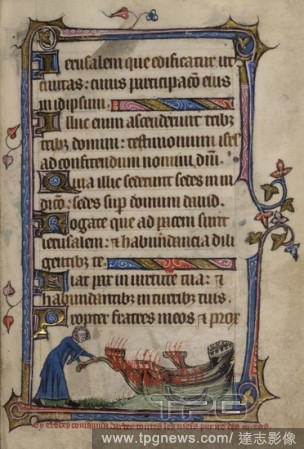 Ierusalem que edificatur ut
ciuitas: cuius participacō eius
in idipsum.
Illuc enim ascenderunt tribȝ
tribȝ domini: testimonium isrl
ad confitendum nomini dñi.
Quia illic sederunt sedes in iu
dicō: sedes sup domum dauid.
Rogate que ad pacem sunt
ierusalem: & habundancia dili
gentibȝ te
Fiat pax in uirtute tua: &
habundantia in turribȝ tuis.
Propter fratres meos & prox
TPG
www.tpgnews.com/達志影像